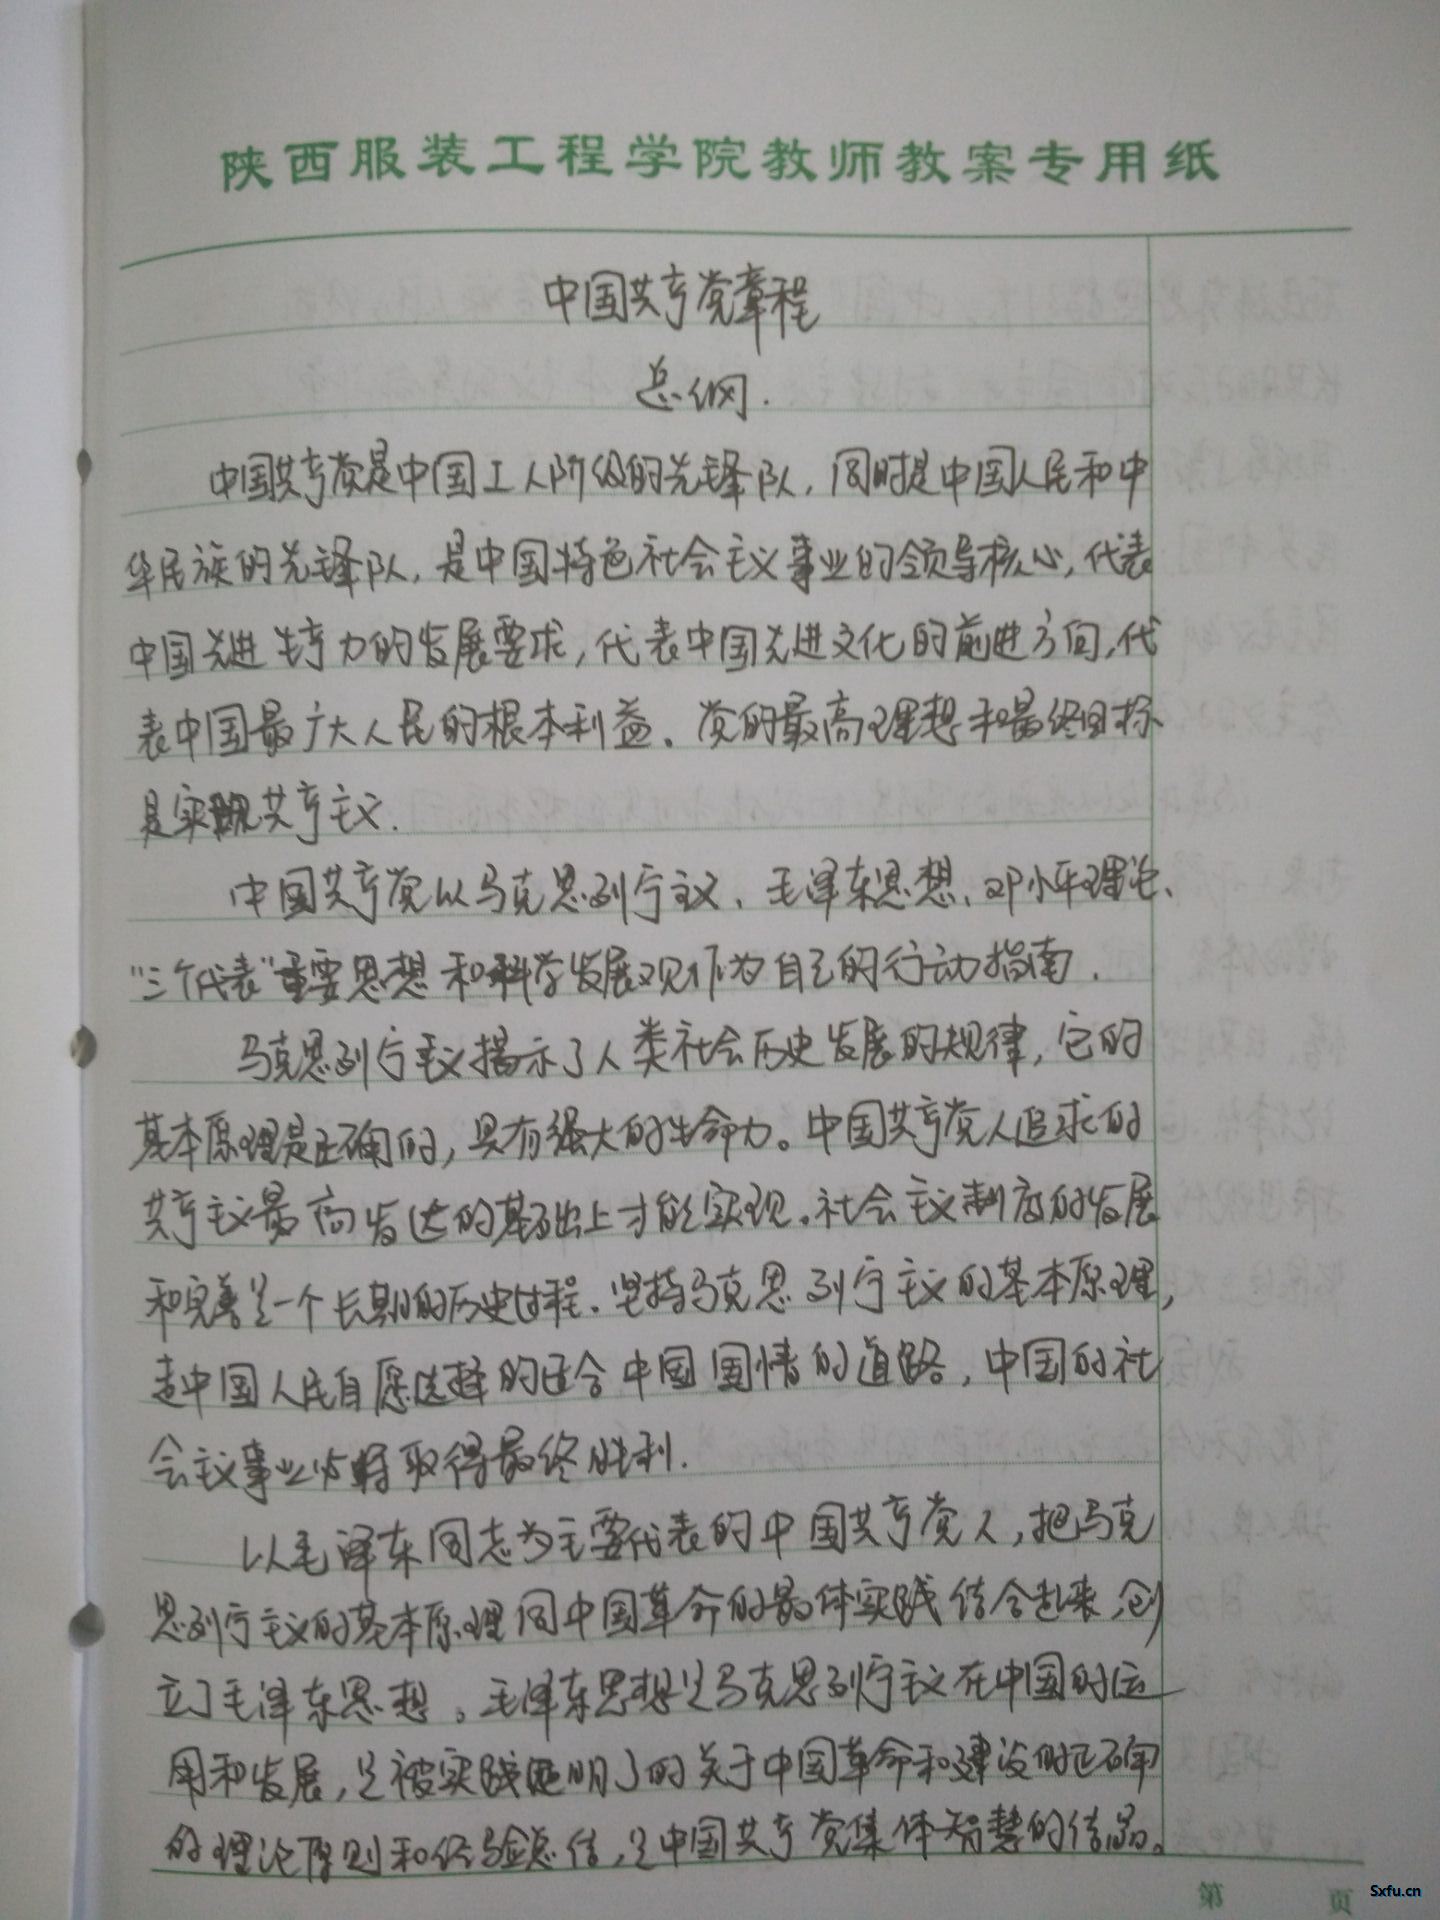 陕西服装工程学院教师教案专用纸
中国共产党章程
总纲.
中国共产党是中国工人阶级的先锋队,同时是中国人民和中
华民族的先锋队,是中国特色社会主义事业的领导核心,代表
中国先进生产力的发展要求,代表中国先进文化的前进方向,代
表中国最广大人民的根本利益。党的最高理想和最终目标
是实现共产主义.
中国共产党以马克思列宁主义、毛泽东思想、邓小平理论、
“三个代表”重要思想和科学发展观作为自己的行动指南.
马克思列宁主义揭示了人类社会历史发展的规律,它的
基本原理是正确的,具有强大的生命力。中国共产党人追求的
共产主义最高发达的基础上才能实现。社会主义制度的发展
和完善是一个长期的历史过程.坚持马克思列宁主义的基本原理,
走中国人民自愿选择的适合中国国情的道路,中国的社
会主义事业必将取得最终胜利.
以毛泽东同志为主要代表的中国共产党人,把马克
思列宁主义的基本原理同中国革命的具体实践结合起来,创
立了毛泽东思想。毛泽东思想是马克思列宁主义在中国的运
用和发展,是被实践证明了的关于中国革命和建设的正确
的理论原则和经验总结,是中国共产党集体智慧的结晶。
第 页
Sxfu.cn